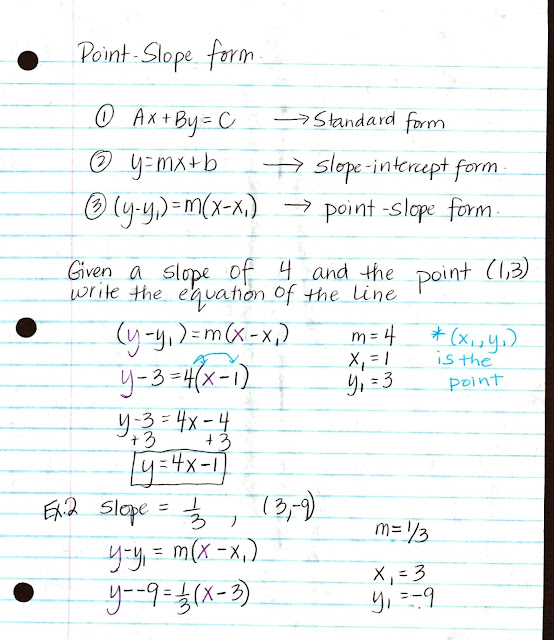 Point-Slope form.
① Ax + By = C → Standard form
② y=mx+b → slope-intercept form.
③ (y-y₁)=m(x-x₁) → point-slope form.
Given a slope of 4 and the point (1,3)
write the equation of the line
(y-y₁)=m(x-x₁) m=4 *(x₁,y₁)
x₁=1 is the
y-3=4(x-1) y₁=3 point
y-3=4x-4
+3 +3
y=4x-1
Ex.2 slope = 1/3 , (3,-9)
m=1/3
y-y₁ = m(x-x₁)
x₁=3
y--9=1/3(x-3) y₁=-9